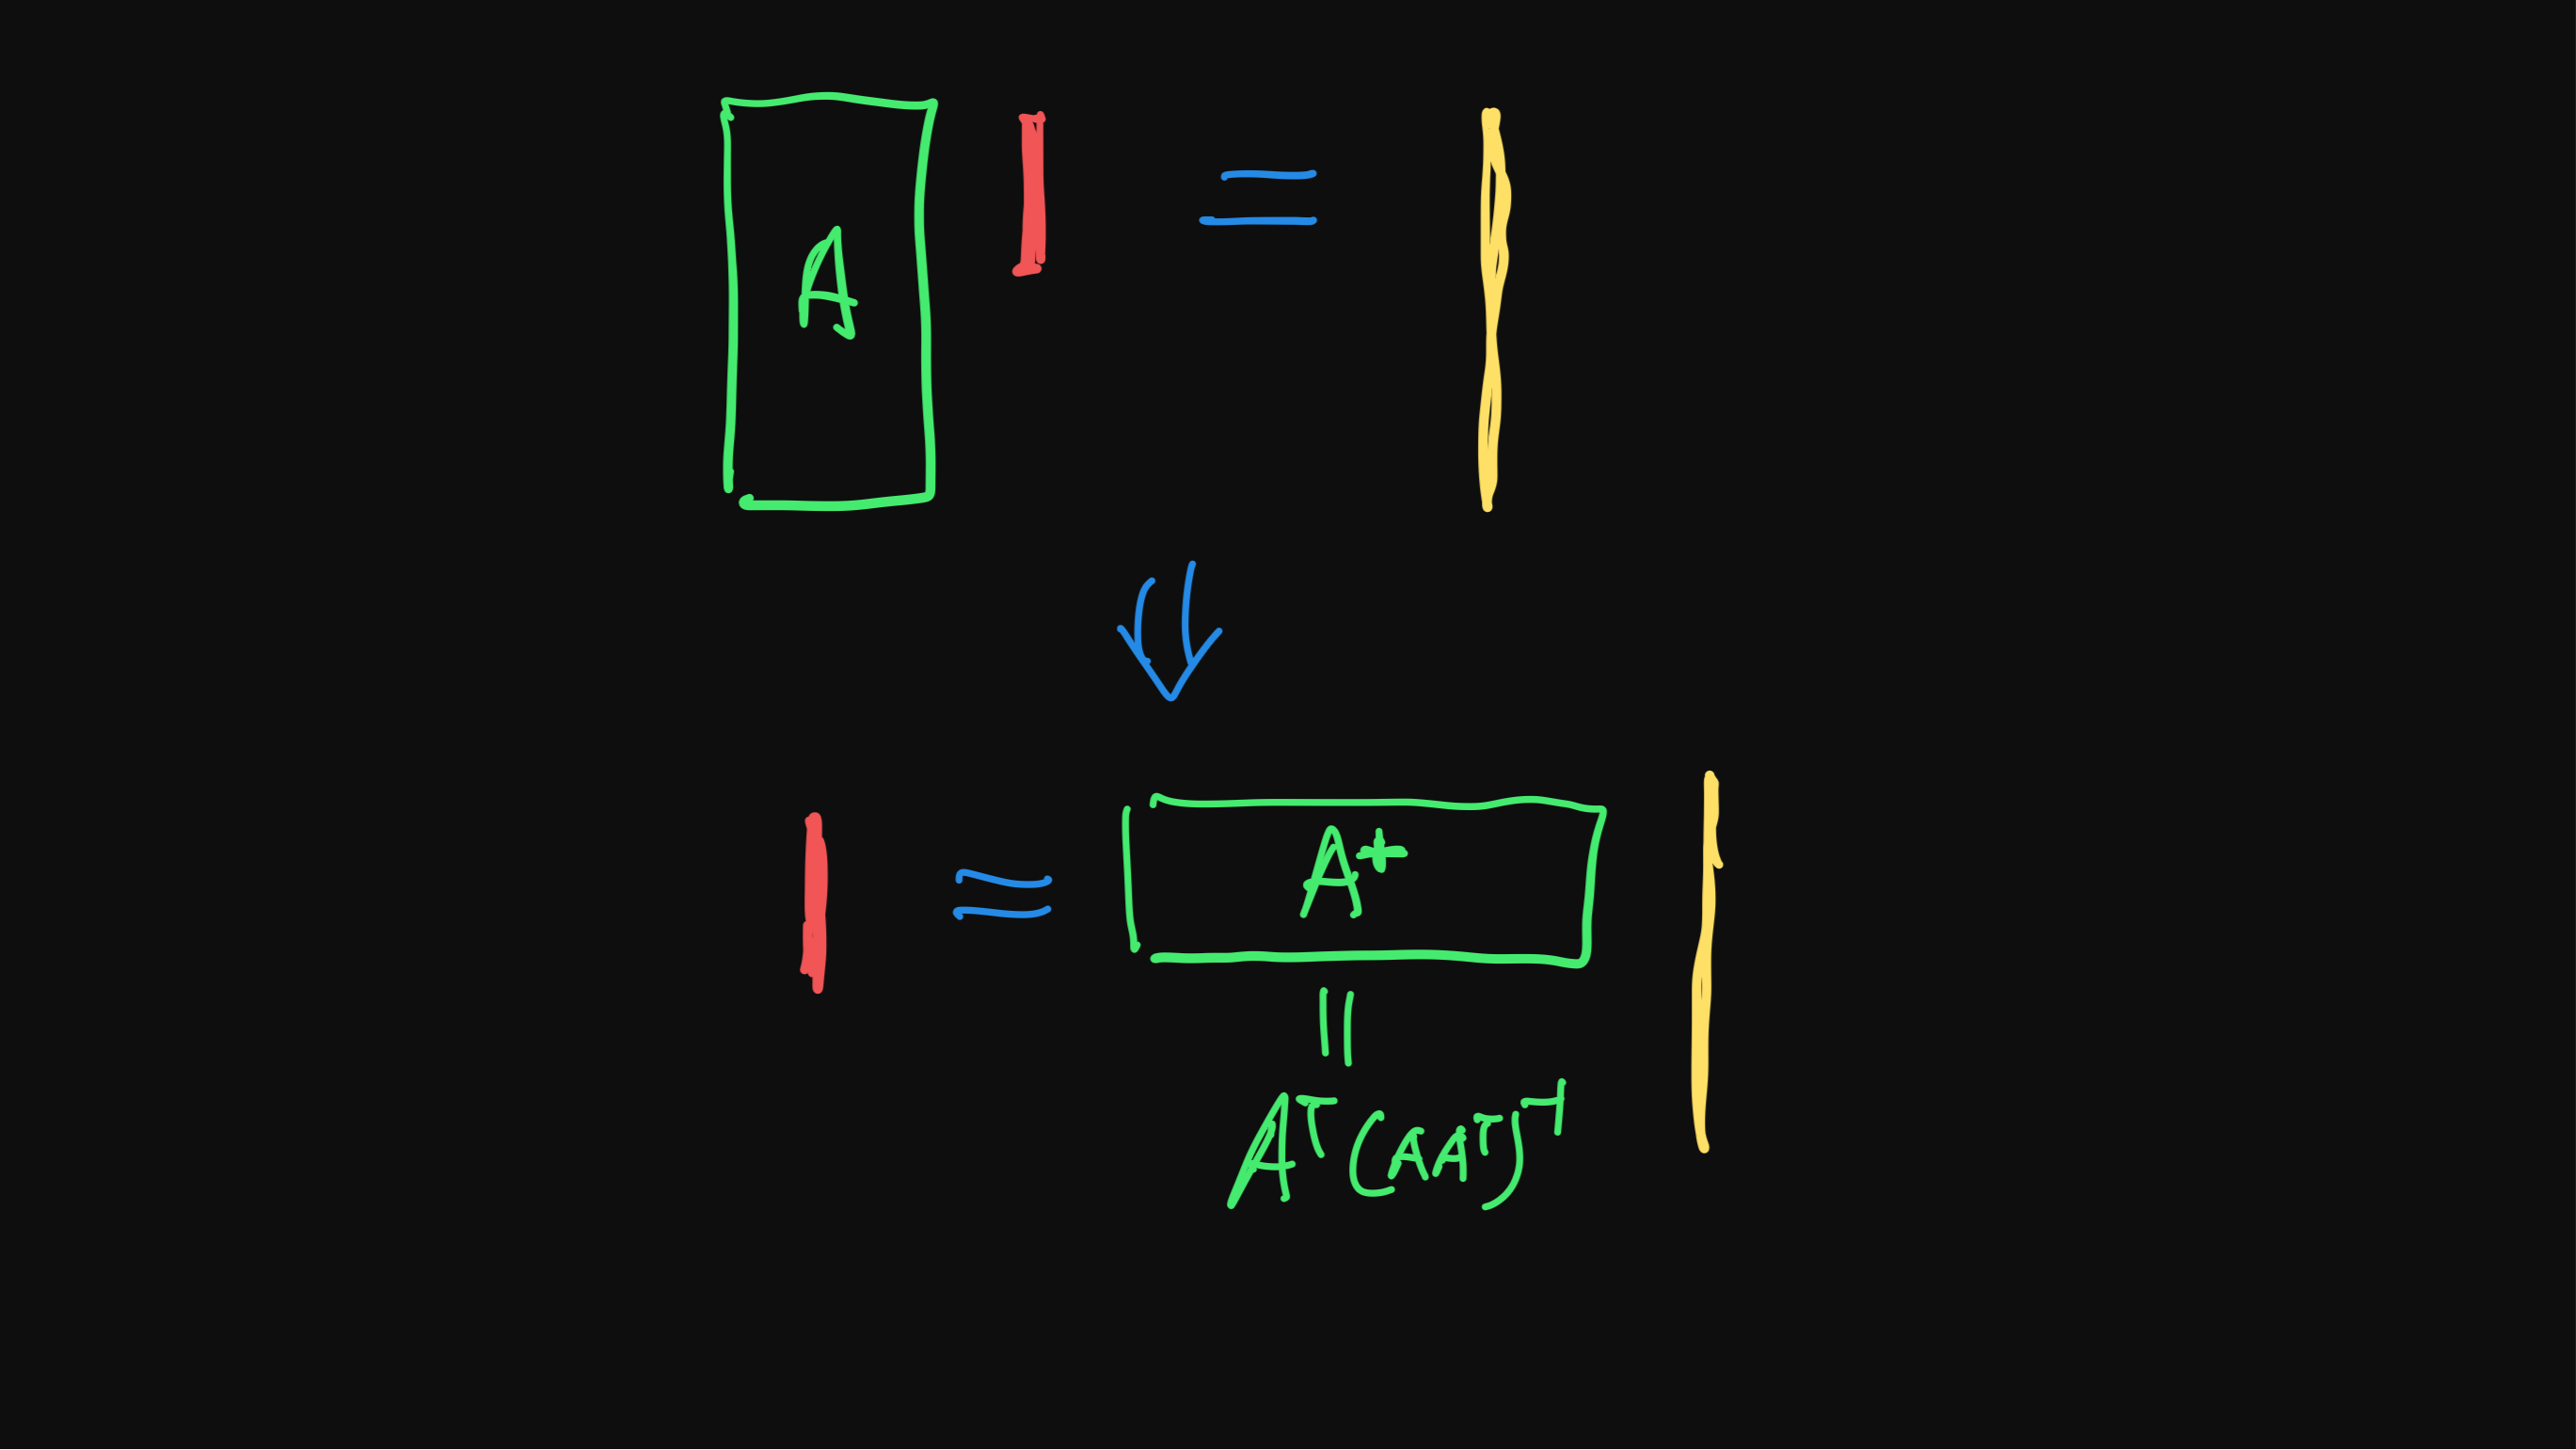 A =
= A⁺
=
Aᵀ(AAᵀ)⁻¹